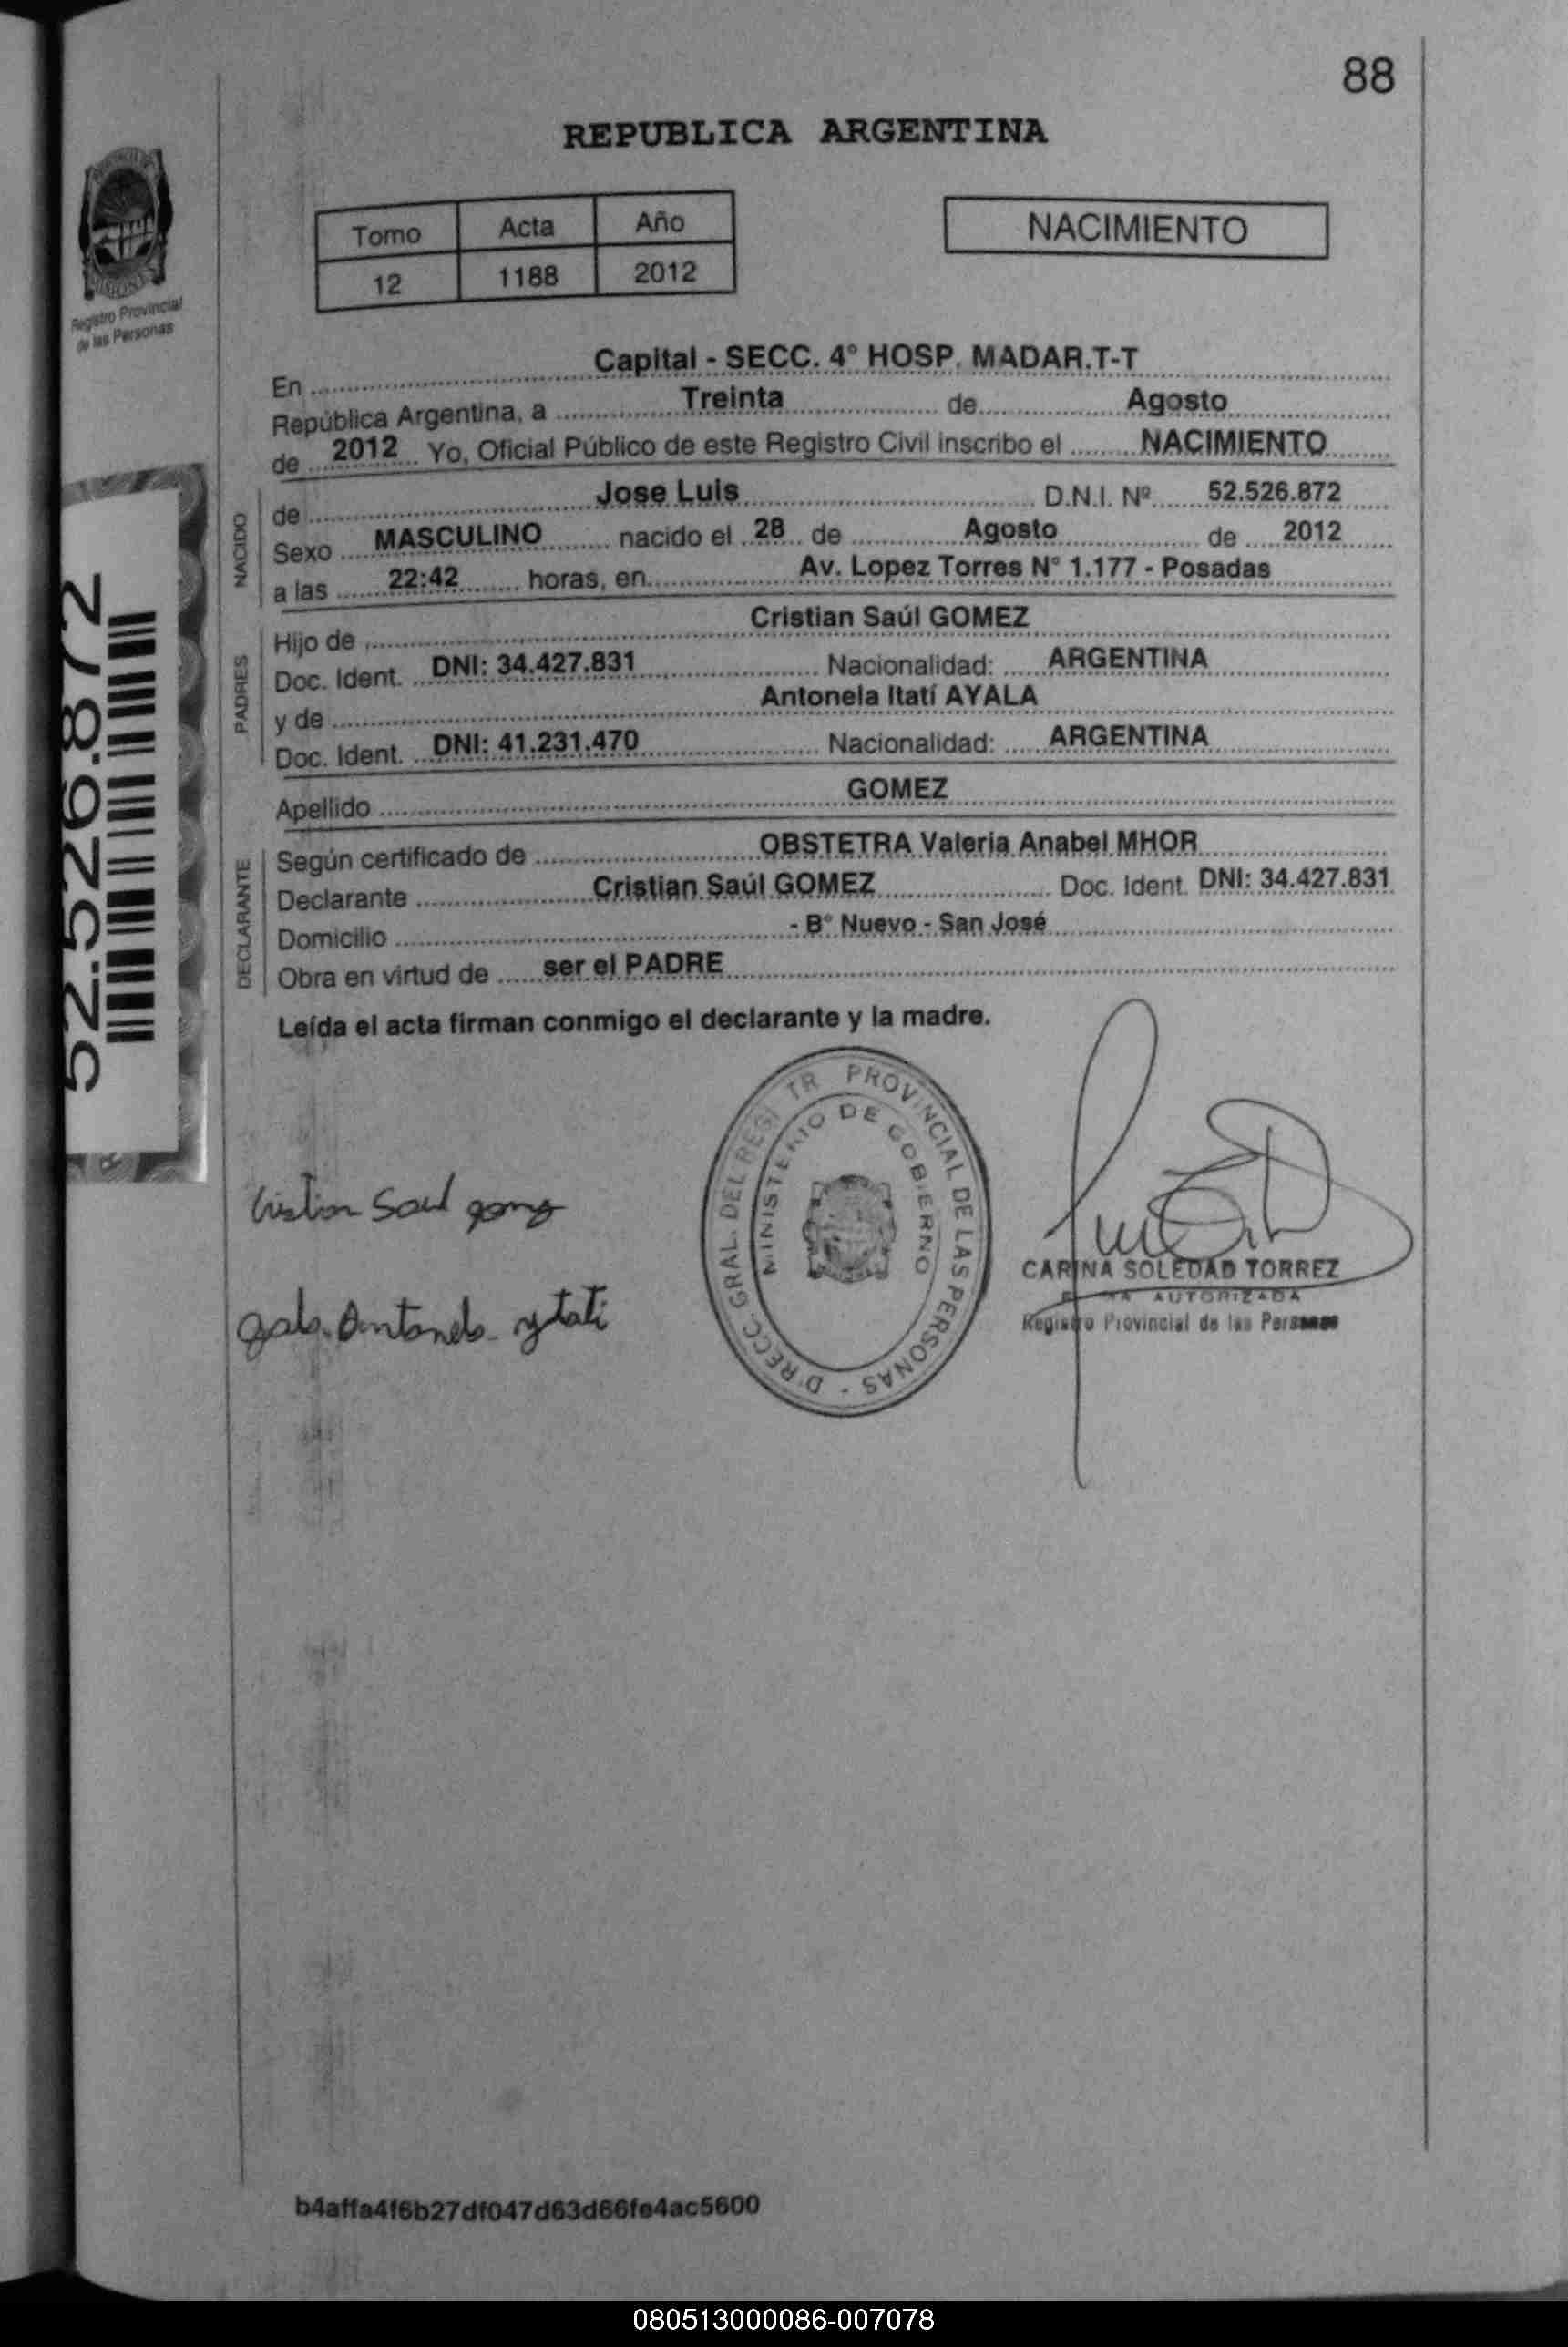 88
REPUBLICA ARGENTINA
Tomo Acta Año
12 1188 2012
NACIMIENTO
Registro Provincial
de las Personas
En Capital - SECC. 4° HOSP. MADAR.T-T
República Argentina, a Treinta de Agosto
de 2012 Yo, Oficial Público de este Registro Civil inscribo el NACIMIENTO
NACIDO
de Jose Luis D.N.I. Nº 52.526.872
Sexo MASCULINO nacido el 28 de Agosto de 2012
a las 22:42 horas, en Av. Lopez Torres N° 1.177 - Posadas
PADRES
Hijo de Cristian Saúl GOMEZ
Doc. Ident. DNI: 34.427.831 Nacionalidad: ARGENTINA
y de Antonela Itatí AYALA
Doc. Ident. DNI: 41.231.470 Nacionalidad: ARGENTINA
Apellido GOMEZ
DECLARANTE
Según certificado de OBSTETRA Valeria Anabel MHOR
Declarante Cristian Saúl GOMEZ Doc. Ident. DNI: 34.427.831
Domicilio - B° Nuevo - San José
Obra en virtud de ser el PADRE
Leída el acta firman conmigo el declarante y la madre.
52.526.872
DIRECC. GRAL. DEL REGISTR PROVINCIAL DE LAS PERSONAS -
MINISTERIO DE GOBIERNO
Cristian Saul gomez
Antonela ytati
CARINA SOLEDAD TORREZ
AUTORIZADA
Registro Provincial de las Personas
b4affa4f6b27df047d63d66fe4ac5600
080513000086-007078